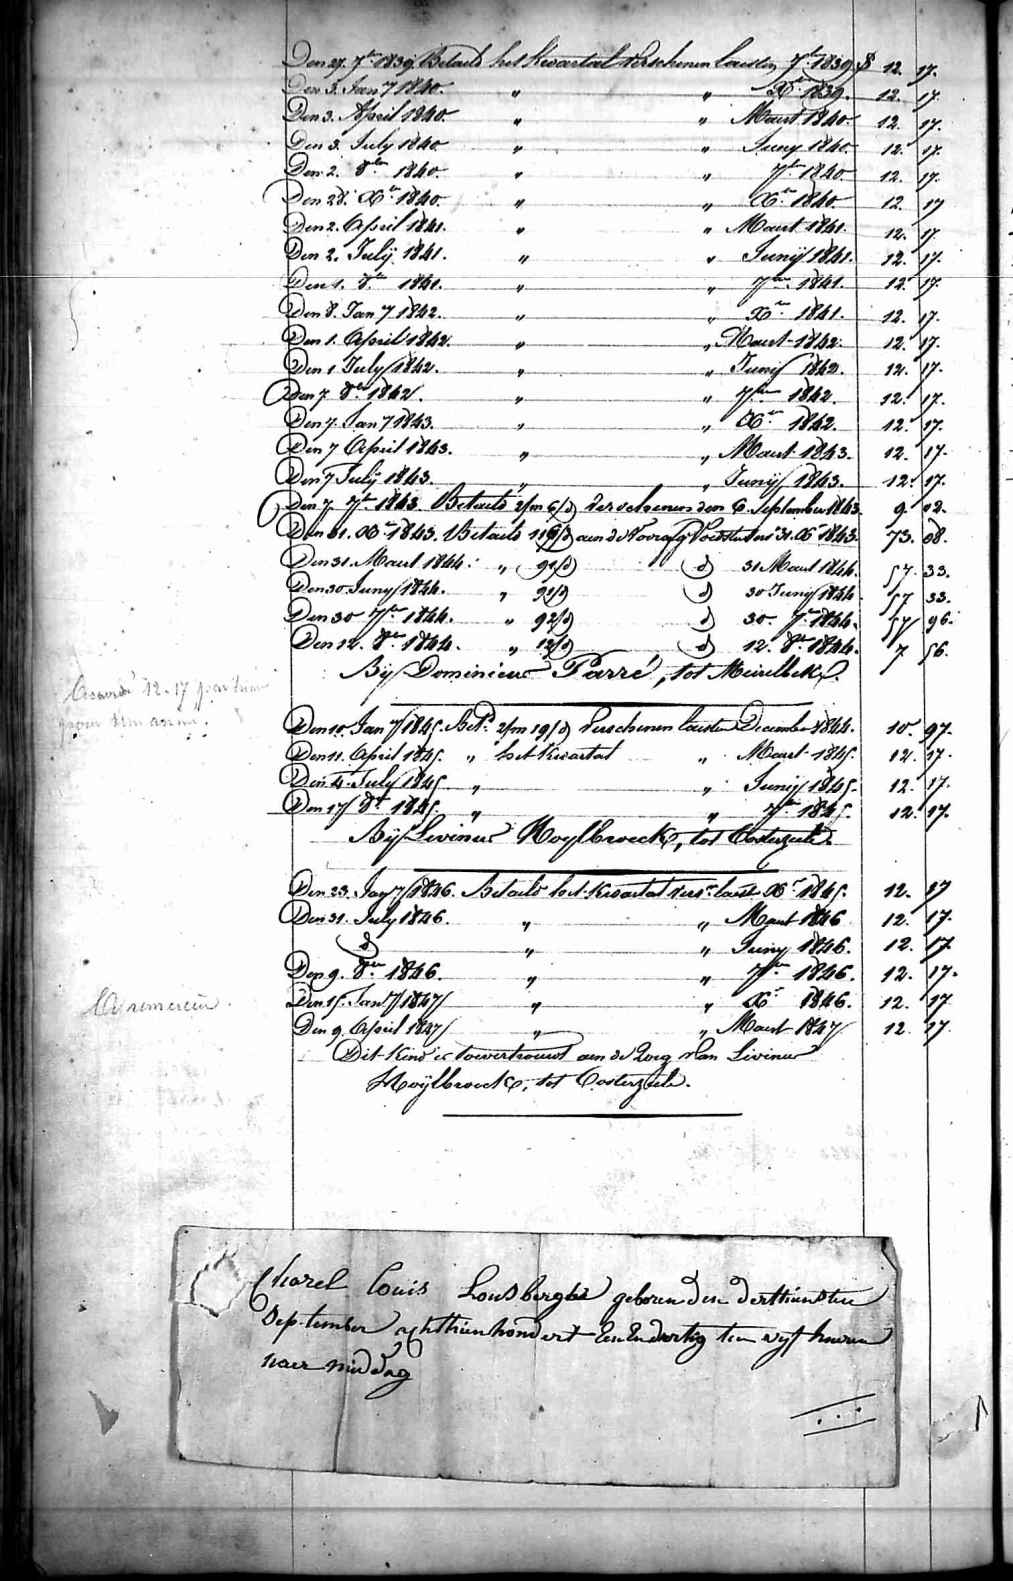 Den 27. 7bre 1839. Betaald het Kwartaal verschenen laesten 7bre 1839. 12. 17.
Den 3. Jany 1840. " " Xbre 1839. 12. 17.
Den 3. April 1840. " " Maert 1840 12. 17.
Den 3. July 1840 " " Juny 1840 12. 17.
Den 2. 8bre 1840 " " 7bre 1840 12. 17.
Den 28. Xbre 1840. " " Xbre 1840 12. 17
Den 2. April 1841. " " Maert 1841. 12. 17
Den 2. July 1841. " " Junij 1841. 12. 17.
Den 1. 8bre 1841. " " 7bre 1841. 12. 17.
Den 8. Jany 1842. " " Xbre 1841. 12. 17.
Den 1. April 1842. " " Maert 1842. 12. 17.
Den 1 July 1842. " " Junij 1842. 12. 17.
Den 7. 8bre 1842. " " 7bre 1842. 12. 17.
Den 7. Jany 1843. " " Xbre 1842. 12. 17.
Den 7 April 1843. " " Maert 1843. 12. 17.
Den 7 July 1843. " " Junij 1843. 12. 17.
Den 7. 7bre 1843. Betaeld 2/m 6/d verschenen den 6. September 1843. 9. 02.
Den 31. Xbre 1843. Betaeld 116/d aen de 31. Xbre 1843. 73. 08.
Den 31. Maert 1844. " 91/d d 31 Maert 1844. 57. 33.
Den 30. Juny 1844. " 91/d d 30 Junij 1844. 57 33.
Den 30 7bre 1844. " 92/d d 30. 7bre 1844. 57 96.
Den 12. 8bre 1844. " 12/d d 12. 8bre 1844. 7 56.
Bij Dominicus Parré, tot Meirelbeke.
12.17 par
Den 10. Jany 1845. Betd. 2/m 19/d verschenen laesten December 1844. 10. 97.
Den 11. April 1845. " het Kwartaal " Maert 1845. 12. 17.
Den 4. July 1845. " " Junij 1845. 12. 17.
Den 17 8bre 1845. " " 7bre 1845. 12. 17.
Bij Livinus Hoylbroeck, tot Oosterzeele.
Den 23. Jany 1846. Betaeld het Kwartaal vers. laest. Xbre 1845. 12. 17
Den 31. July 1846. " " Maert 1846 12. 17.
d " " Juny 1846. 12. 17
Den 9. 8bre 1846. " " 7bre 1846. 12. 17.
Den 15. Jany 1847 " " Xbre 1846. 12. 17
Den 9. April 1847 " " Maert 1847 12. 17.
Dit kind is toevertrouwt aen de zorg van Livinus
Hoijlbroeck, tot Oosterzeele.
Charel Louis Lousberghs geboren den derthiensten
September achthienhondert Een En dertig ten vyf huren
naer middag